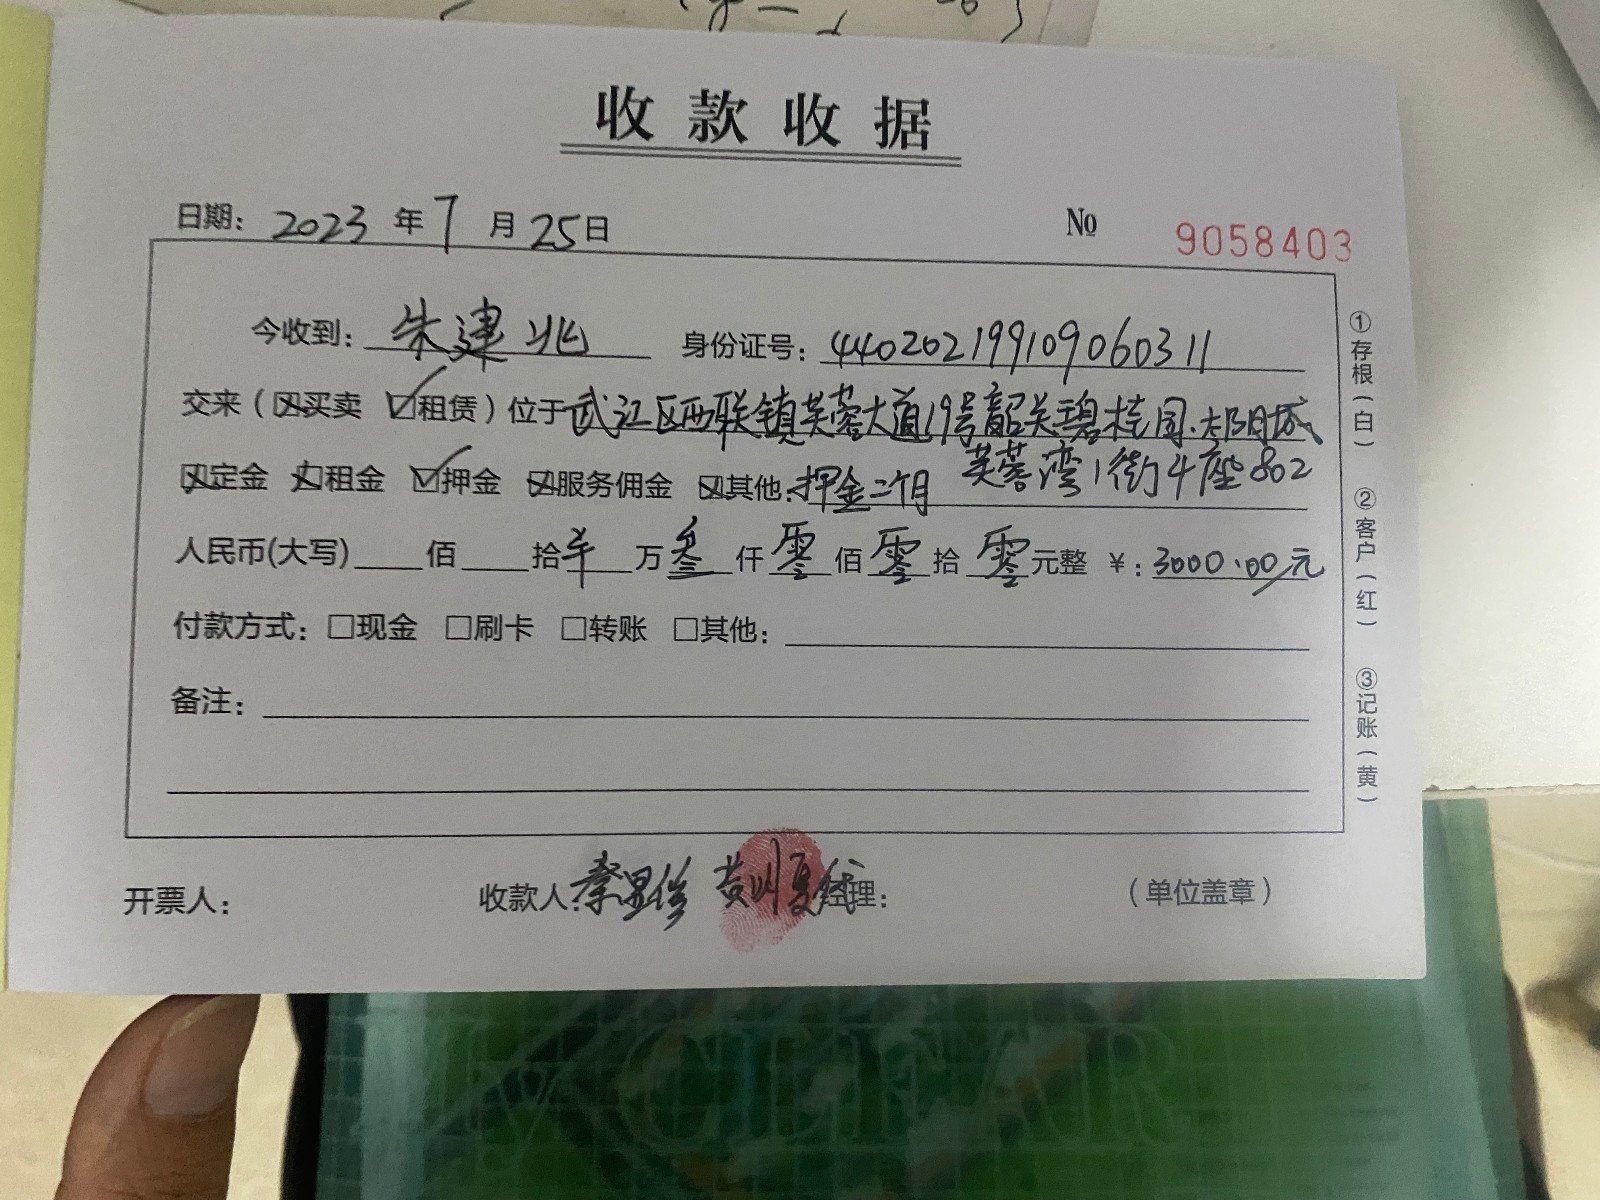 收款收据
日期：2023年7月25日 № 9058403
今收到：朱建兆 身份证号：440202199109060311
交来（☒买卖 ☑租赁）位于武江区西联镇芙蓉大道19号韶关碧桂园·太阳城
芙蓉湾1街4座802
☒定金 ☒租金 ☑押金 ☒服务佣金 ☒其他：押金二个月
人民币(大写)____佰____拾羊万叁仟零佰零拾零元整 ￥：3000.00元
付款方式：□现金 □刷卡 □转账 □其他：
备注：
开票人： 收款人： 经理： （单位盖章）
①存根（白） ②客户（红） ③记账（黄）
CLEAR